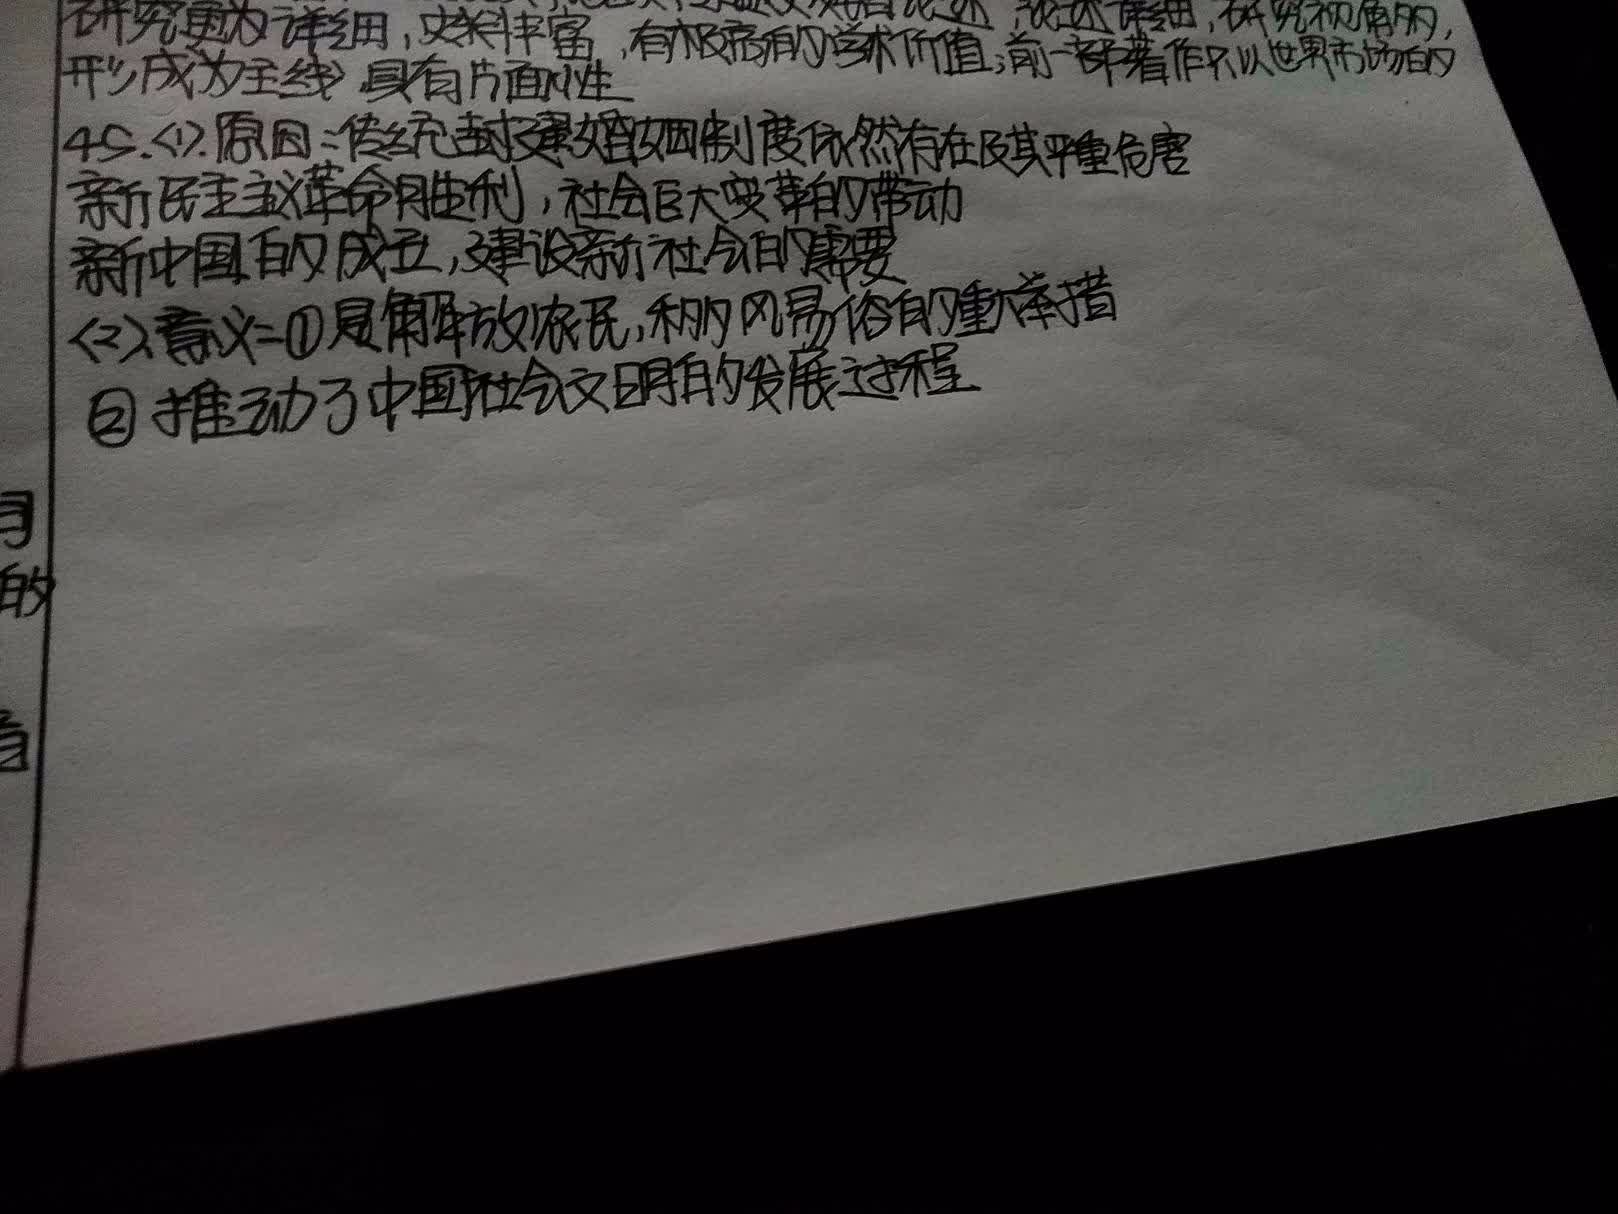 论述详细，研究视角
研究更为详细，史料丰富，有极高的学术价值；前一部著作只以世界市场的
形成为主线，具有片面性
45.<1>.原因：传统封建婚姻制度依然存在及其严重危害
新民主主义革命胜利，社会巨大变革的带动
新中国的成立，建设新社会的需要
<2>、意义：①是解放农民，移风易俗的重大举措
② 推动了中国社会文明的发展过程
的